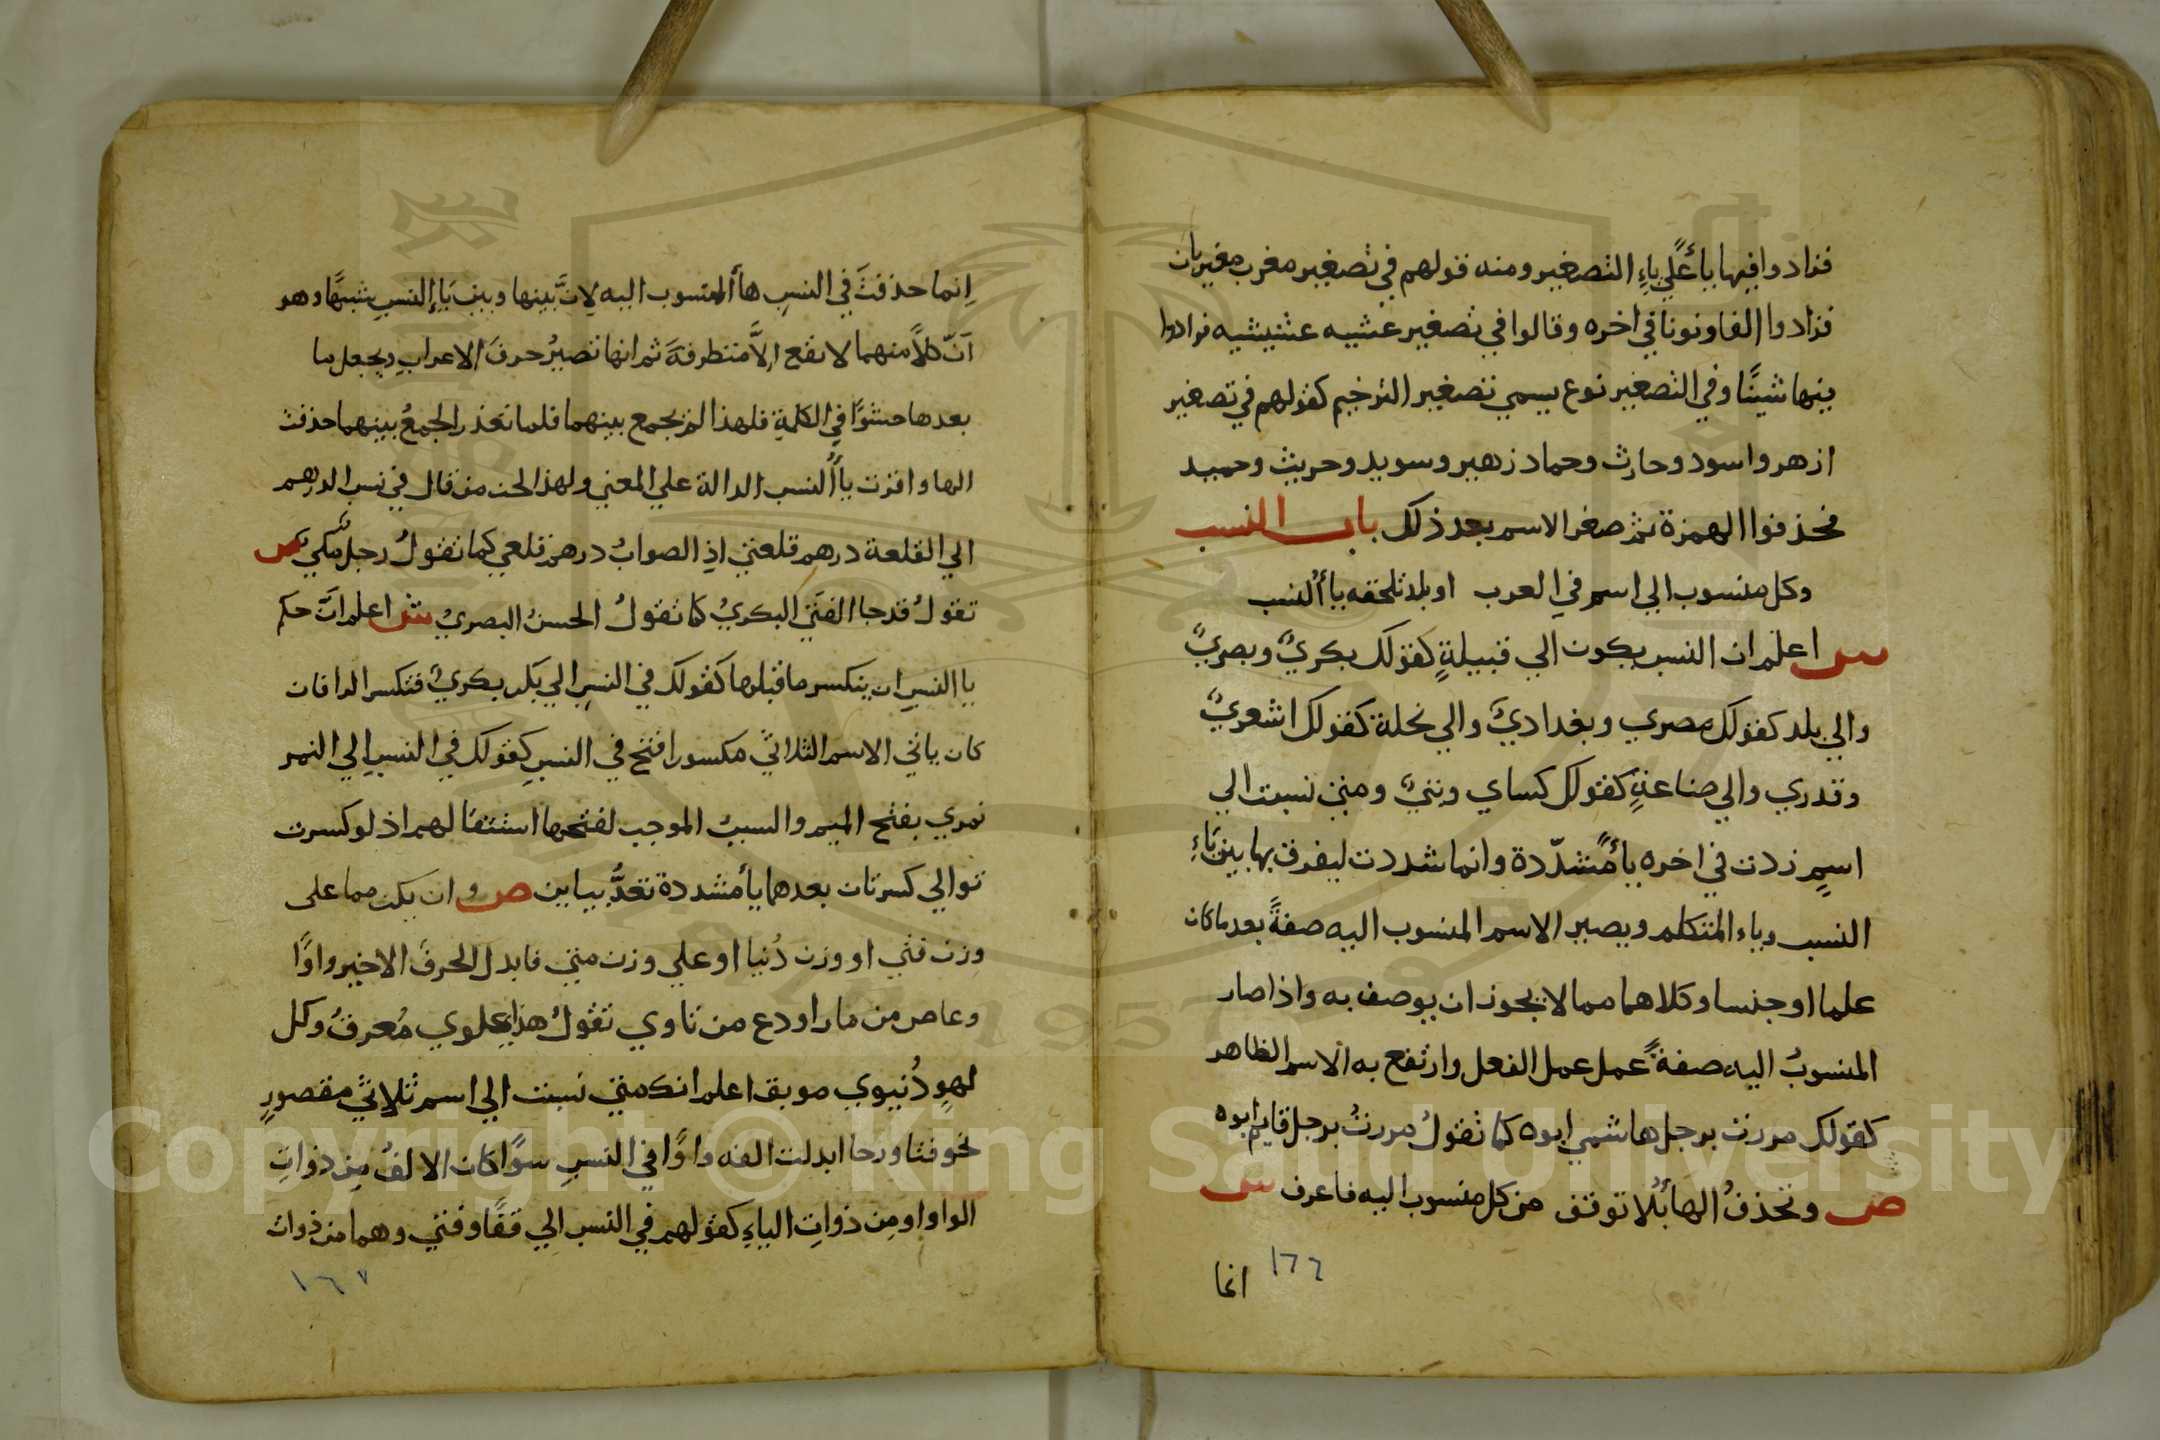 فزادوا فيها ياءً علي ياءِ التصغير ومنه قولهم في تصغير مغرب مغيربان
فزادوا الفا ونونا في اخره وقالوا في تصغير عشيه عشيشيه فزادوا
بينها شينًا وفي التصغير نوع يسمي تصغير الترخيم كقولهم في تصغير
ازهر واسود وحارث وحماد زهير وسويد وحريث وحميد
فحذفوا الهمزة ثم صغر الاسم بعد ذلك باب النسب
وكل منسوب الي اسم في العرب او بلد تلحقه ياءُ النسب
ش اعلم ان النسب يكون الي قبيلةٍ كقولك بكريٌ وبصريٌ
والي بلد كقولك مصري وبغداديٌ والي نحلة كقولك اشعريٌ
وقدري والي صناعةٍ كقولك كساي وبنيٌ ومتي نسبت الي
اسمٍ زدت في اخره ياءً مشدّدة وانما شددت ليفرق بها بين ياءِ
النسب وياء المتكلم ويصير الاسم المنسوب اليه صفةً بعد ما كان
علما او جنسا وكلاهما مما لا يجوز ان يوصف به واذا صار
المنسوبُ اليه صفةً عمل عمل الفعل وارتفع به الاسم الظاهر
كقولك مررت برجل هاشمي ابوه كما تقولُ مررتُ برجل قايم ابوه
ص وتحذفُ الهاءُ بلا توقف من كل منسوب اليه فاعرف ش
١٦٦ انما
اِنما حذفتَ في النسبِ هاءُ المنسوب اليه لِانَّ بينها وبين يَاءِ النسبِ شبهًا وهو
اَنّ كلاً منهما لا تقع اِلاَّ متطرفةَ ثم انها تصيرُ حرفَ الاعرابِ ويجعل ما
بعدها حشوًا في الكلمةِ فلهذا لم يجمع بينهما فلما تعذر الجمعُ بينهما حذفت
الها واقرت ياءُ النسب الدالة علي المعني ولهذا لحن من قال في نسب الدرهم
الي القلعة درهم قلعتي اذِ الصوابُ درهم قلعي كما تقولُ رجل مكي ص
تقولُ قد جا الفتي البكريُ كما تقولُ الحسنُ البصريُ ش اعلم اَنَّ حكم
يا النسبِ ان ينكسر ما قبلها كقولك في النسبِ الي بَكر بكريٌ فتكسر الرا فان
كان ياتي الاسم الثلاثي مكسورا فتح في النسبِ كقولك في النسبِ الي النمر
نمري بفتح الميم والسببُ الموجب لفتحها استثقالهم اذ لو كسرت
توالي كسرتان بعدهما ياءُ مشددة تعدُّ بياين ص وان يكن مما على
وزن فتي او وزن دُنيا او علي وزن متي فابدل الحرفَ الاخير واوًا
وعاص من مارا ودع من ناوي تقولُ هذا علوي مُعرقُ وكل
لهوٍ دُنيوي موبق اعلم انك متي نسبت الي اسم ثلاثي مقصورٍ
نحو فتا ورحا ابدلت الفه واوًا في النسبِ سوًا كان الالفُ مِن ذواتِ
الواو او من ذواتِ الياءِ كقولهم في النسب الي قفًا وفتي وهما من ذوات
١٦٧
Copyright © King Saud University
1957